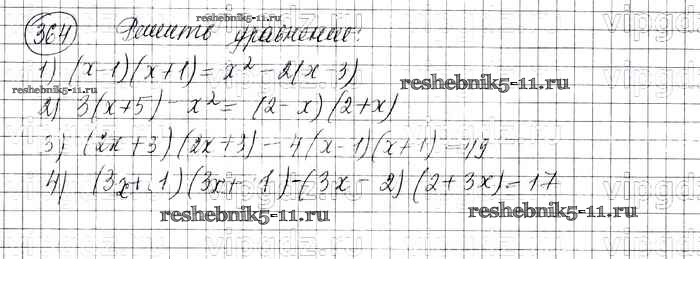 364 Решить уравнение:
reshebnik5-11.ru
1) (x-1)(x+1) = x² - 2(x-3)
reshebnik5-11.ru
reshebnik5-11.ru
2) 3(x+5) - x² = (2-x)(2+x)
3) (2x+3)(2x+3) - 4(x-1)(x+1) = 49
4) (3x+1)(3x+1) - (3x-2)(2+3x) = 17
reshebnik5-11.ru
reshebnik5-11.ru